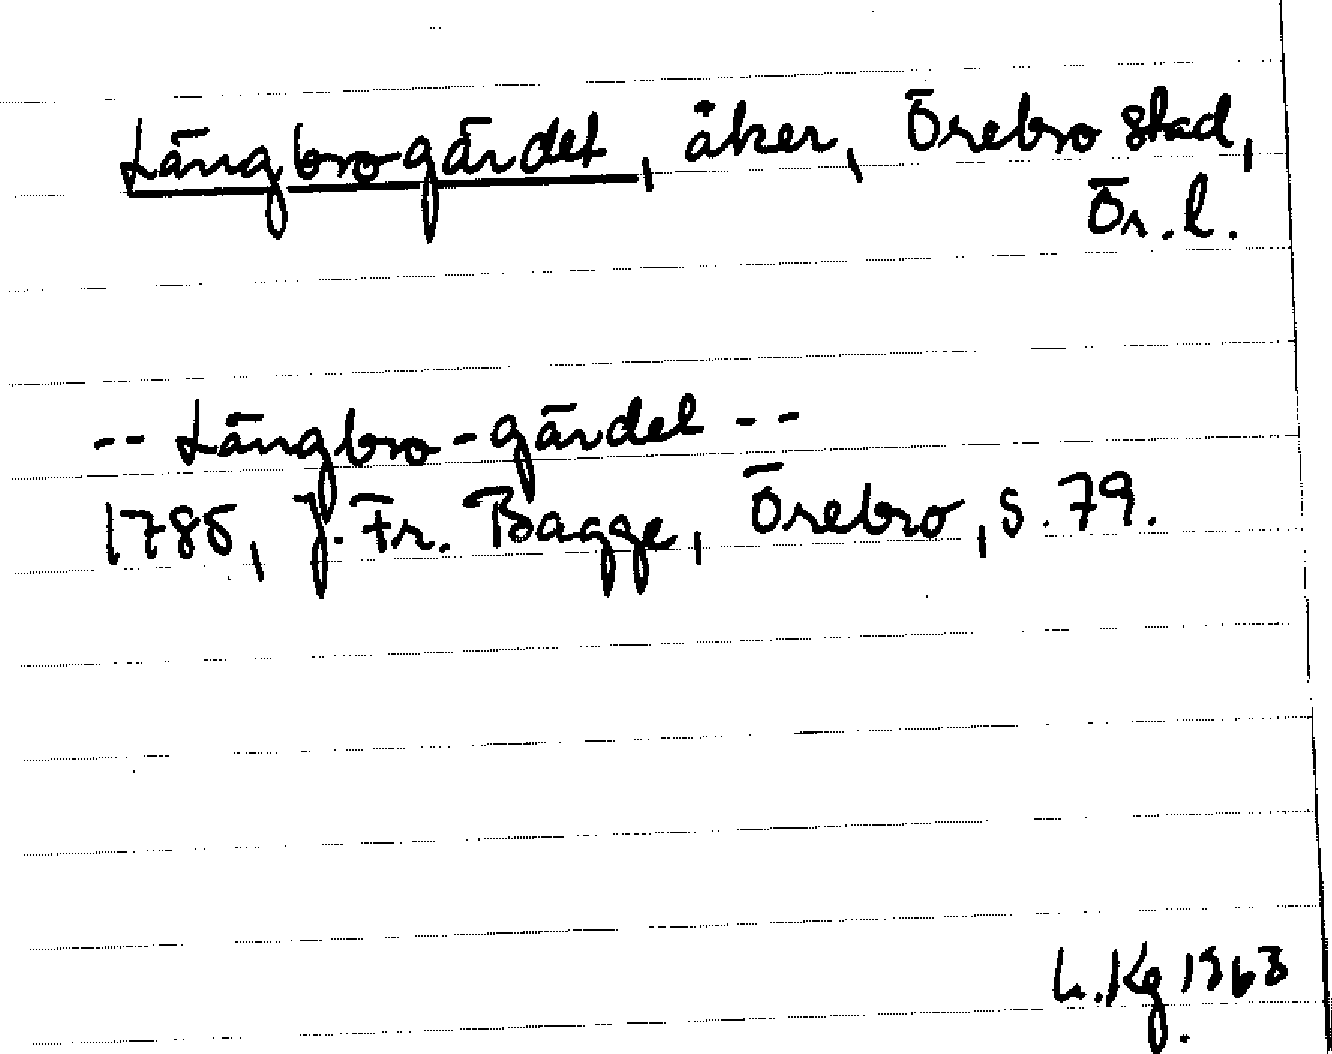 Längbrogärdet, åker, Örebro stad,
Ör.l.
-- Längbro-gärdet --
1785, J. Fr. Bagge, Örebro, s. 79.
Kg. 1963